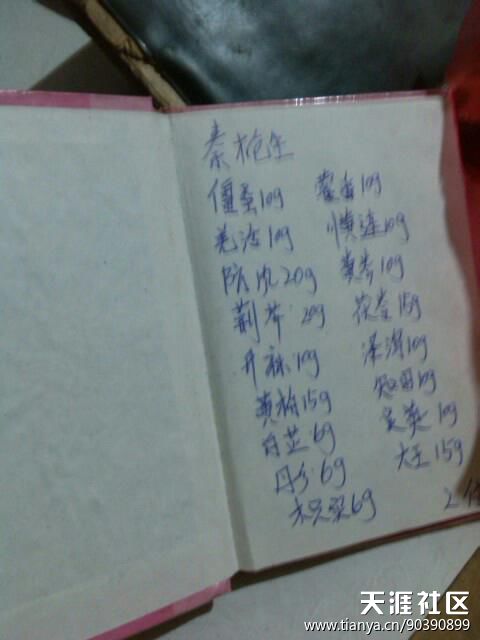 秦艽
僵蚕10g 藿香10g
羌活10g 川黄连10g
防风20g 黄芩10g
荆芥20g 茯苓15g
升麻10g 泽泻10g
黄柏15g 知母10g
白芷6g 10g
丹参6g 大 15g
枳 6g
天涯社区
www.tianya.cn/90390899